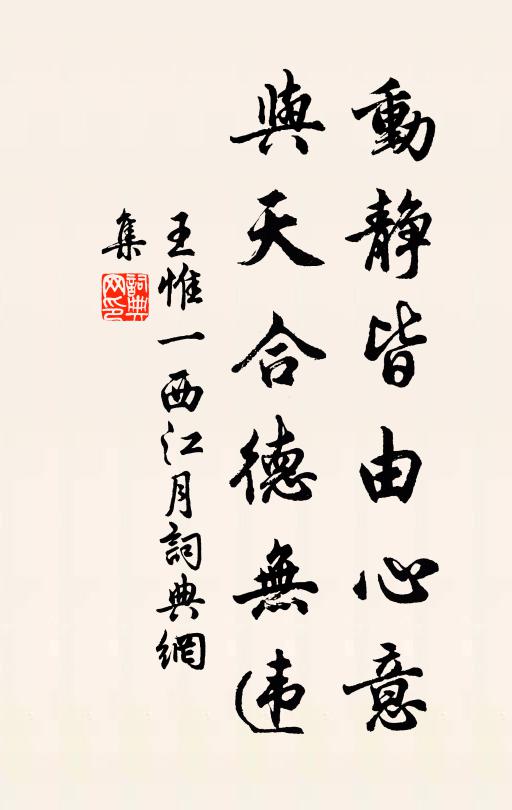 動静皆由心意
與天合德無违
王惟一西江月詞典網
集
詞典
网印